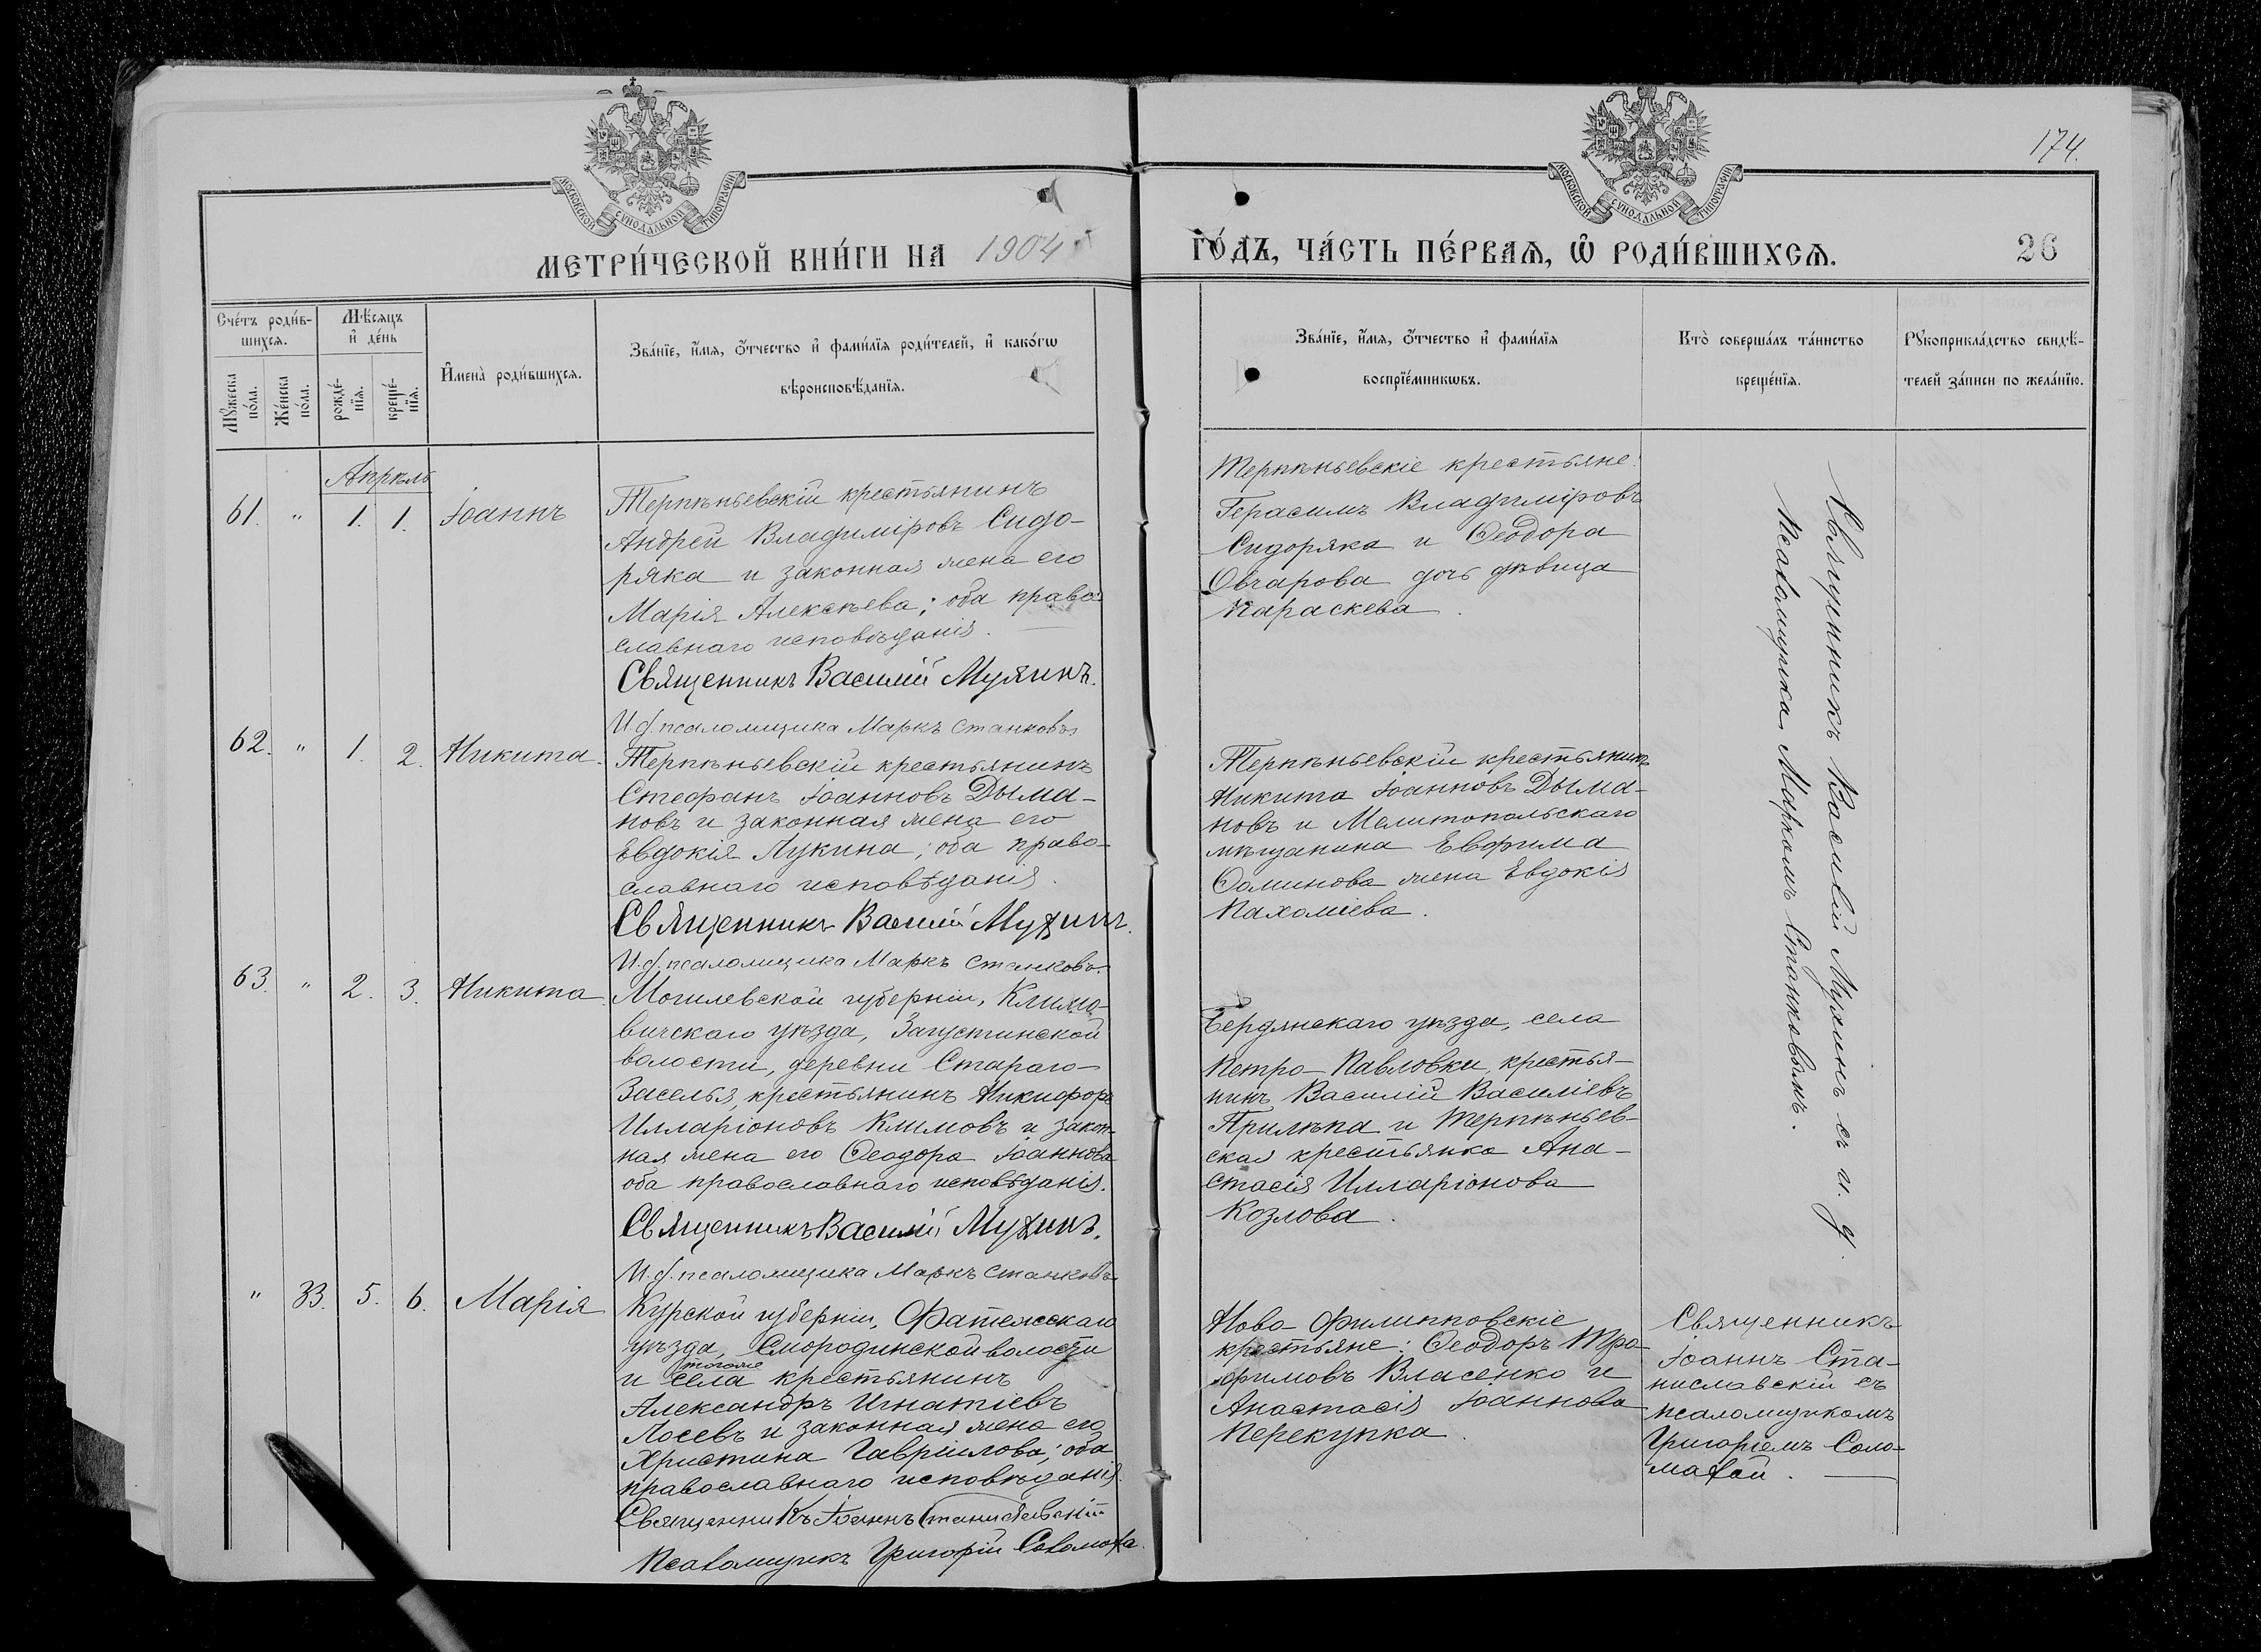 174.
МОСКОВСКОЙ СѴНОДАЛЬНОЙ ТИПОГРАФІИ
МОСКОВСКОЙ СѴНОДАЛЬНОЙ ТИПОГРАФІИ
МЕТРИ́ЧЕСКОЙ КНИ́ГИ НА 1904
ГО́ДЪ, ЧА́СТЬ ПЕ́РВАѦ, Ѡ҆ РОДИ́ВШИХСѦ.
26
Сче́тъ роди́в-
шихсѧ.
Мꙋ́жеска
по́ла.
Же́нска
по́ла.
Мѣ́сѧцъ
и҆ де́нь
рожде́-
нїѧ.
креще́-
нїѧ.
И҆мена̀ роди́вшихсѧ.
Зва́нїе, и҆́мѧ, ѻ҆́тчество и҆ фамѝлїѧ роди́телей, и҆ како́гѡ
вѣроисповѣ́данїѧ.
Зва́нїе, и҆́мѧ, ѻ҆́тчество и҆ фамѝлїѧ
воспрїе́мникѡвъ.
Кто̀ соверша́лъ та́инство
креще́нїѧ.
Рꙋкоприкла́дство свидѣ́-
телей за́писи по жела́нїю.
Апрѣль
61. " 1. 1. Іоаннъ
Терпѣньевскій крестьянинъ
Андрей Владиміровъ Сидо-
ряка и законная жена его
Марія Алексѣева; оба право-
славнаго исповѣданія.
Священникъ Василій Мухинъ.
И. д. псаломщика Маркъ Станковъ
Терпѣньевскіе крестьяне:
Герасимъ Владиміровъ
Сидоряка и Ѳеодора
Овчарова дочь дѣвица
Параскева.
Священникъ Василій Мухинъ съ и. д.
псаломщика Маркомъ Станковымъ.
62. " 1. 2. Никита.
Терпѣньевскій крестьянинъ
Стефанъ Іоанновъ Дыма-
новъ и законная жена его
Евдокія Лукина; оба право-
славнаго исповѣданія.
Священникъ Василій Мухинъ.
И. д. псаломщика Маркъ Станковъ.
Терпѣньевскій крестьянинъ
Никита Іоанновъ Дыма-
новъ и Мелитопольскаго
мѣщанина Евфима
Ѳоминова жена Евдокія
Пахоміева.
63. " 2. 3. Никита.
Могилевской губерніи, Климо-
вичскаго уѣзда, Загустинской
волости, деревни Стараго-
Заселья, крестьянинъ Никифоръ
Илларіоновъ Климовъ и закон-
ная жена его Ѳеодора Іоаннова
оба православнаго исповѣданія.
Священникъ Василій Мухинъ.
И. д. псаломщика Маркъ Станковъ
Бердянскаго уѣзда, села
Петро-Павловки, крестья-
нинъ Василій Василіевъ
Прилѣпа и Терпѣньев-
ская крестьянка Ана-
стасія Илларіонова
Козлова.
" 33. 5. 6. Марія
Курской губерніи, Фатежскаго
уѣзда, Смородинской волости
тогоже
и села крестьянинъ
Александръ Игнатіевъ
Лосевъ и законная жена его
Христина Гавріилова; оба
православнаго исповѣданія.
Священникъ Іоаннъ Станиславскій
Псаломщикъ Григорій Соломаха.
Ново-Филипповскіе
крестьяне: Ѳеодоръ Тро-
фимовъ Власенко и
Анастасія Іоаннова
Перекупка.
Священникъ
Іоаннъ Ста-
ниславскій съ
псаломщикомъ
Григоріемъ Соло-
махой.